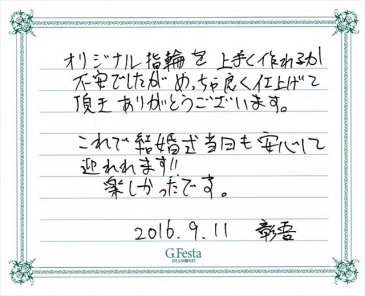 オリジナル指輪を上手く作れるか
不安でしたがめっちゃ良く仕上げて
頂きありがとうございます。
これで結婚式当日も安心して
迎れれます!!
楽しかったです。
2016.9.11 彰吾
G.Festa
DIAMOND